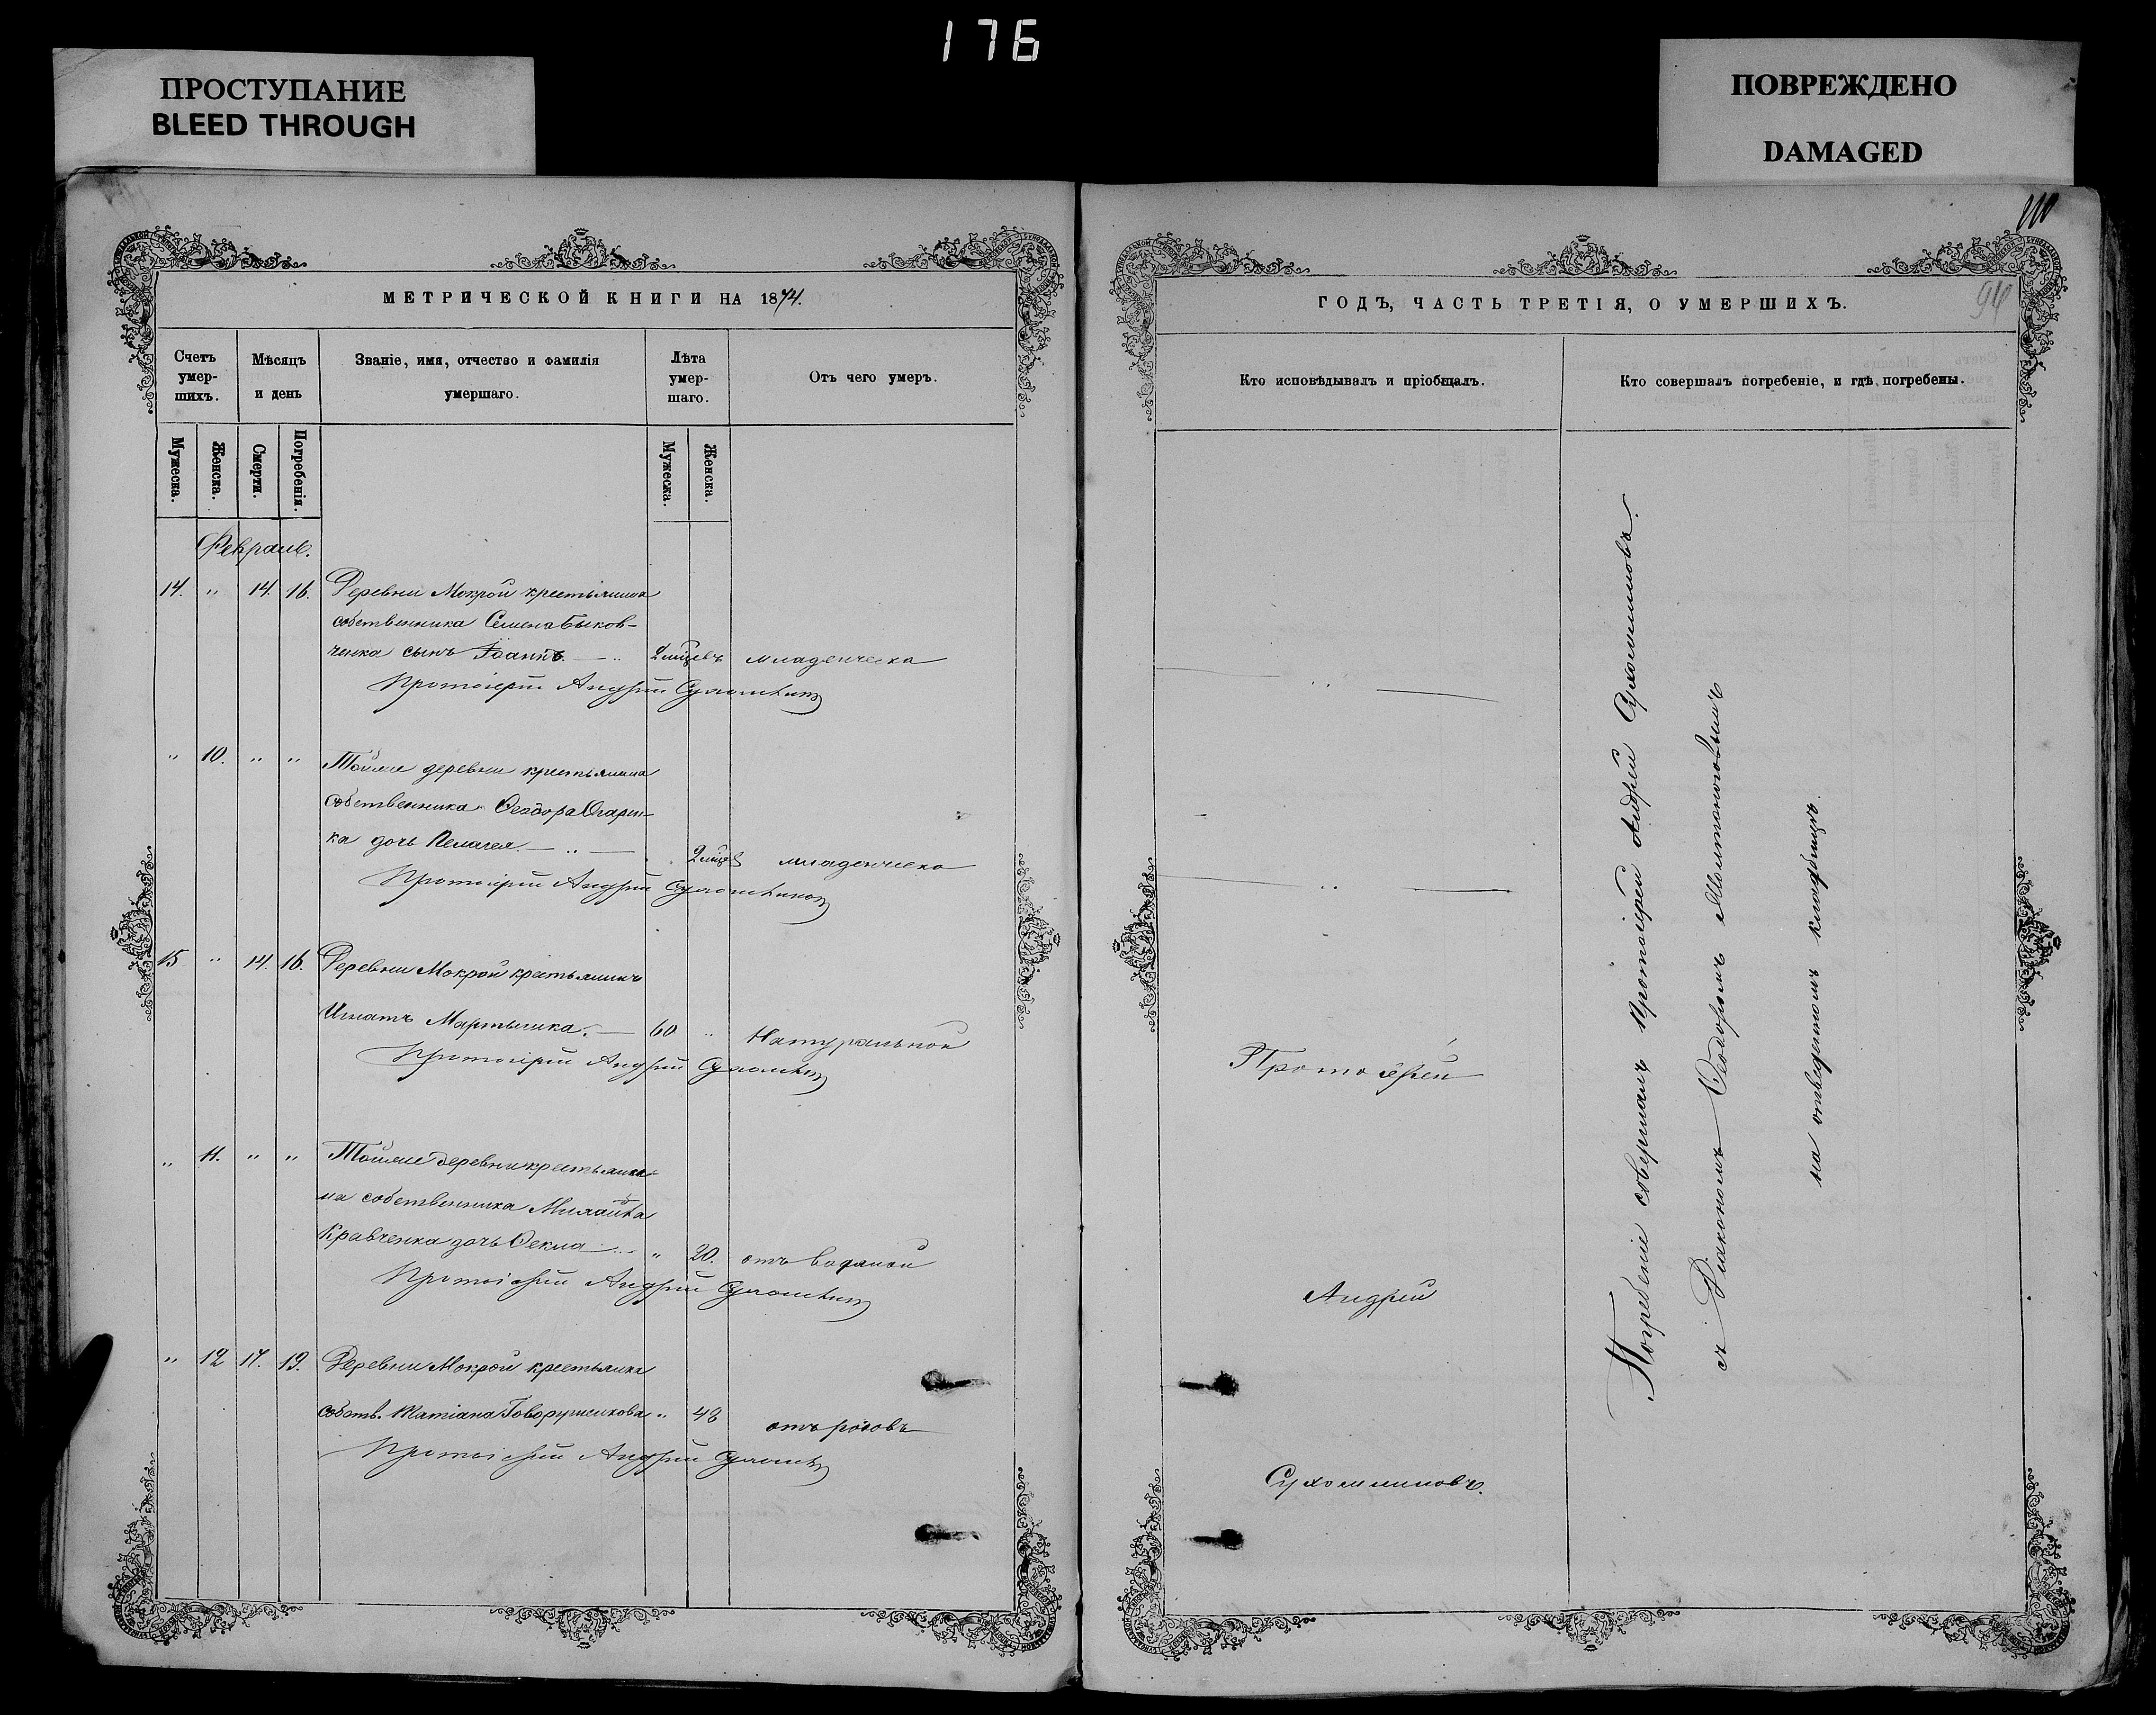 176
ПРОСТУПАНИЕ
BLEED THROUGH
ПОВРЕЖДЕНО
DAMAGED
МЕТРИЧЕСКОЙ КНИГИ НА 1874.
Счетъ умер-шихъ.
Мѣсяцъ и день
Званіе, имя, отчество и фамилія умершаго.
Лѣта умер-шаго.
Отъ чего умеръ.
Мужеска. Женска. Смерти. Погребенія. Мужеска. Женска.
Февраль.
14. " 14. 16. Деревни Мокрой крестьянина
собственника Семена Быков-
ченка сынъ Іоаннъ. 2 мцевъ младенческа
Протоіерей Андрей Сухомлинов
" 10. " " Тойже деревни крестьянина
собственника Ѳеодора
ка дочь Пелагея 2 мцев младенческа
Протоіерей Андрей Сухомлинов
15 " 14. 16. Деревни Мокрой крестьянинъ
Игнатъ Мартынка. 60 " Натуральной
Протоіерей Андрей Сухомлинов
" 11. " " Тойже деревни крестьяни-
на собственника Михаила
Кравченка дочь Ѳекла " 20. отъ водяной
Протоіерей Андрей Сухомлинов
" 12 17. 19. Деревни Мокрой крестьянка
собств. Татіана " 48 отъ родовъ
Протоіерей Андрей Сухомлинов
94
ГОДЪ, ЧАСТЬ ТРЕТІЯ, О УМЕРШИХЪ.
Кто исповѣдывалъ и пріобщалъ.
Кто совершалъ погребеніе, и гдѣ погребены.
Протоіерей
Андрей
Сухомлиновъ.
Погребеніе совершалъ Протоіерей Андрей Сухомлиновъ.
съ Діакономъ Ѳеодоромъ
на отведенномъ кладбищѣ.